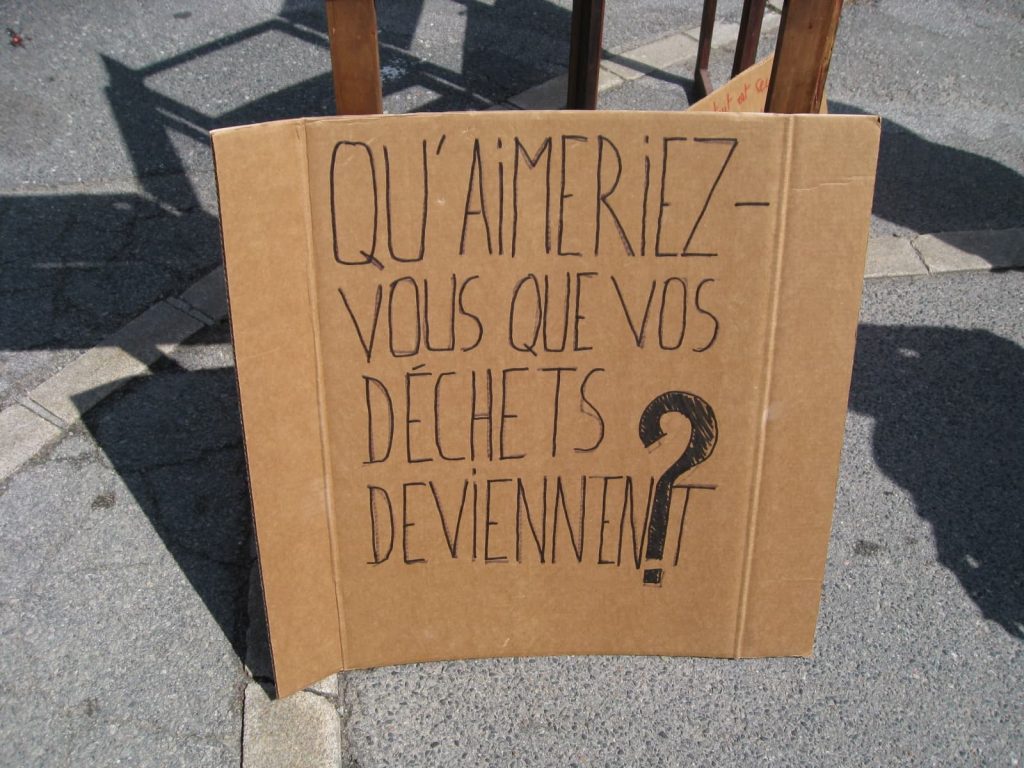 QU'AIMERIEZ-
VOUS QUE VOS
DÉCHETS
DEVIENNENT ?
est